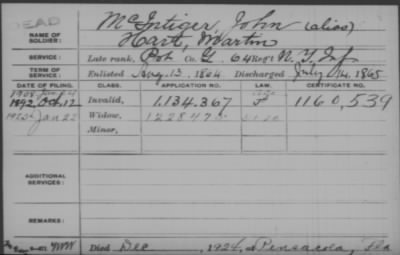 DEAD
NAME OF SOLDIER: McIntiger, John (alias)
Hart, Martin
SERVICE: Late rank, Pvt Co. G, 64 Reg't N.Y. Inf
TERM OF SERVICE: Enlisted Aug. 13, 1864 Discharged July 14, 1865
DATE OF FILING. CLASS. APPLICATION NO. LAW. CERTIFICATE NO.
1892, Oct. 12 Invalid, 1.134.367 1160,539
1925 Jan 22 Widow,
Minor,
ADDITIONAL SERVICES:
REMARKS:
WW Died Dec , 1924, at Pensacola, Fla